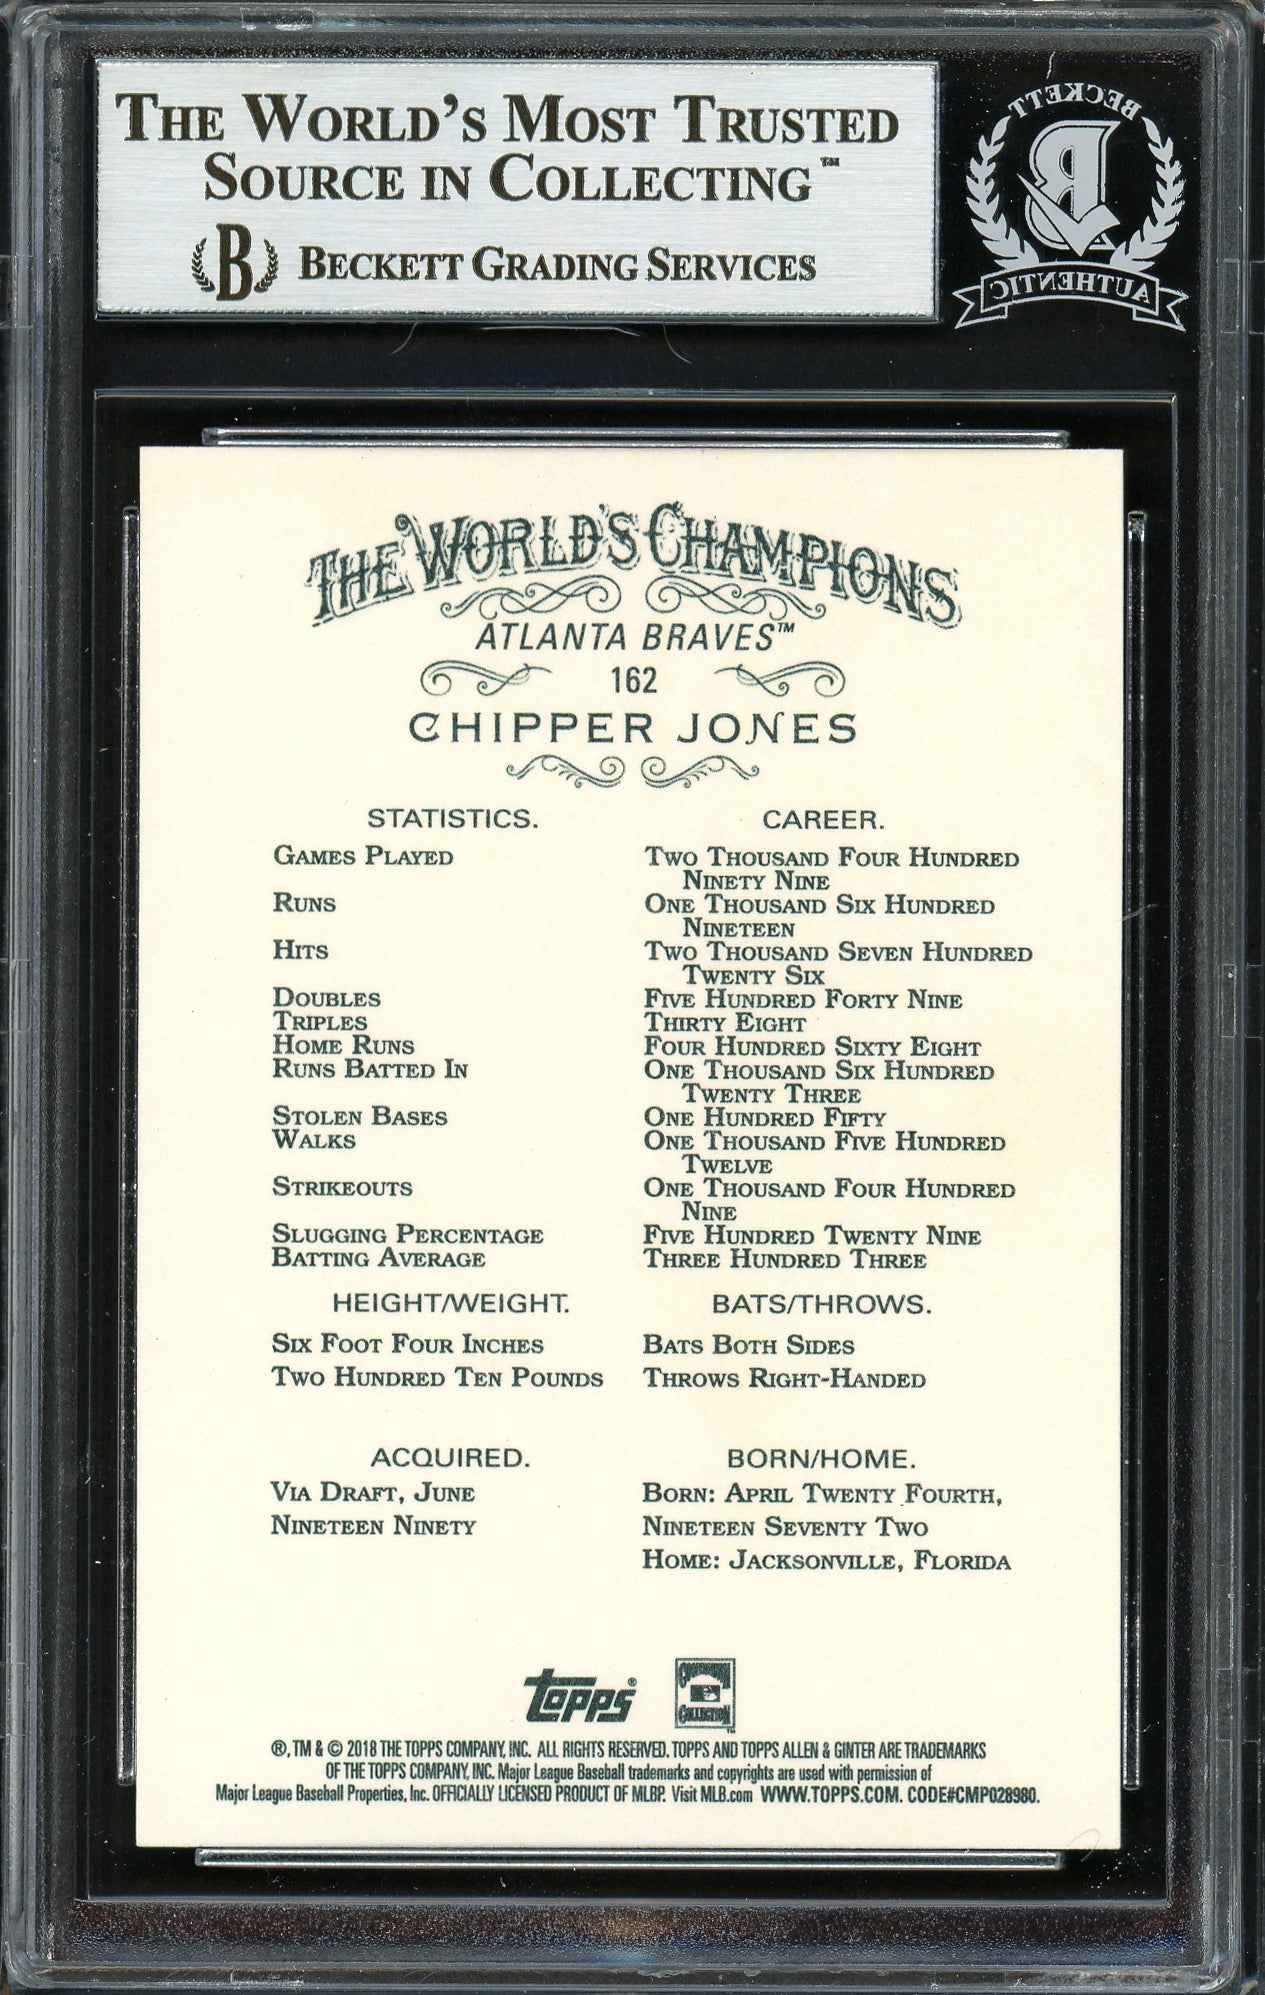 THE WORLD'S MOST TRUSTED
SOURCE IN COLLECTING™
B BECKETT GRADING SERVICES
BECKETT
B
AUTHENTIC
THE WORLD'S CHAMPIONS
ATLANTA BRAVES™
162
CHIPPER JONES
STATISTICS. CAREER.
GAMES PLAYED TWO THOUSAND FOUR HUNDRED
NINETY NINE
RUNS ONE THOUSAND SIX HUNDRED
NINETEEN
HITS TWO THOUSAND SEVEN HUNDRED
TWENTY SIX
DOUBLES FIVE HUNDRED FORTY NINE
TRIPLES THIRTY EIGHT
HOME RUNS FOUR HUNDRED SIXTY EIGHT
RUNS BATTED IN ONE THOUSAND SIX HUNDRED
TWENTY THREE
STOLEN BASES ONE HUNDRED FIFTY
WALKS ONE THOUSAND FIVE HUNDRED
TWELVE
STRIKEOUTS ONE THOUSAND FOUR HUNDRED
NINE
SLUGGING PERCENTAGE FIVE HUNDRED TWENTY NINE
BATTING AVERAGE THREE HUNDRED THREE
HEIGHT/WEIGHT. BATS/THROWS.
SIX FOOT FOUR INCHES BATS BOTH SIDES
TWO HUNDRED TEN POUNDS THROWS RIGHT-HANDED
ACQUIRED. BORN/HOME.
VIA DRAFT, JUNE BORN: APRIL TWENTY FOURTH,
NINETEEN NINETY NINETEEN SEVENTY TWO
HOME: JACKSONVILLE, FLORIDA
topps® COOPERSTOWN
COLLECTION™
®, TM & © 2018 THE TOPPS COMPANY, INC. ALL RIGHTS RESERVED. TOPPS AND TOPPS ALLEN & GINTER ARE TRADEMARKS
OF THE TOPPS COMPANY, INC. Major League Baseball trademarks and copyrights are used with permission of
Major League Baseball Properties, Inc. OFFICIALLY LICENSED PRODUCT OF MLBP. Visit MLB.com WWW.TOPPS.COM. CODE#CMP028980.